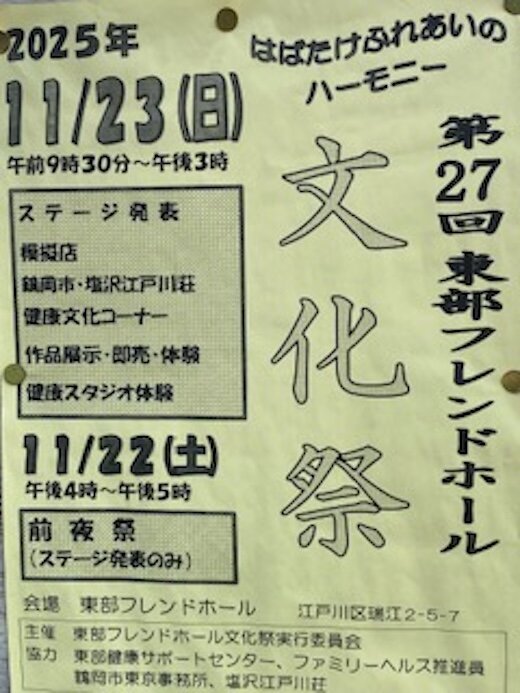 2025年
11/23(日)
午前9時30分～午後3時
ステージ発表
模擬店
鶴岡市・塩沢江戸川荘
健康文化コーナー
作品展示・即売・体験
健康スタジオ体験
11/22(土)
午後4時～午後5時
前夜祭
(ステージ発表のみ)
はばたけふれあいの
ハーモニー
第27回 東部フレンドホール
文化祭
会場 東部フレンドホール 江戸川区瑞江2-5-7
主催 東部フレンドホール文化祭実行委員会
協力 東部健康サポートセンター、ファミリーヘルス推進員
鶴岡市東京事務所、塩沢江戸川荘